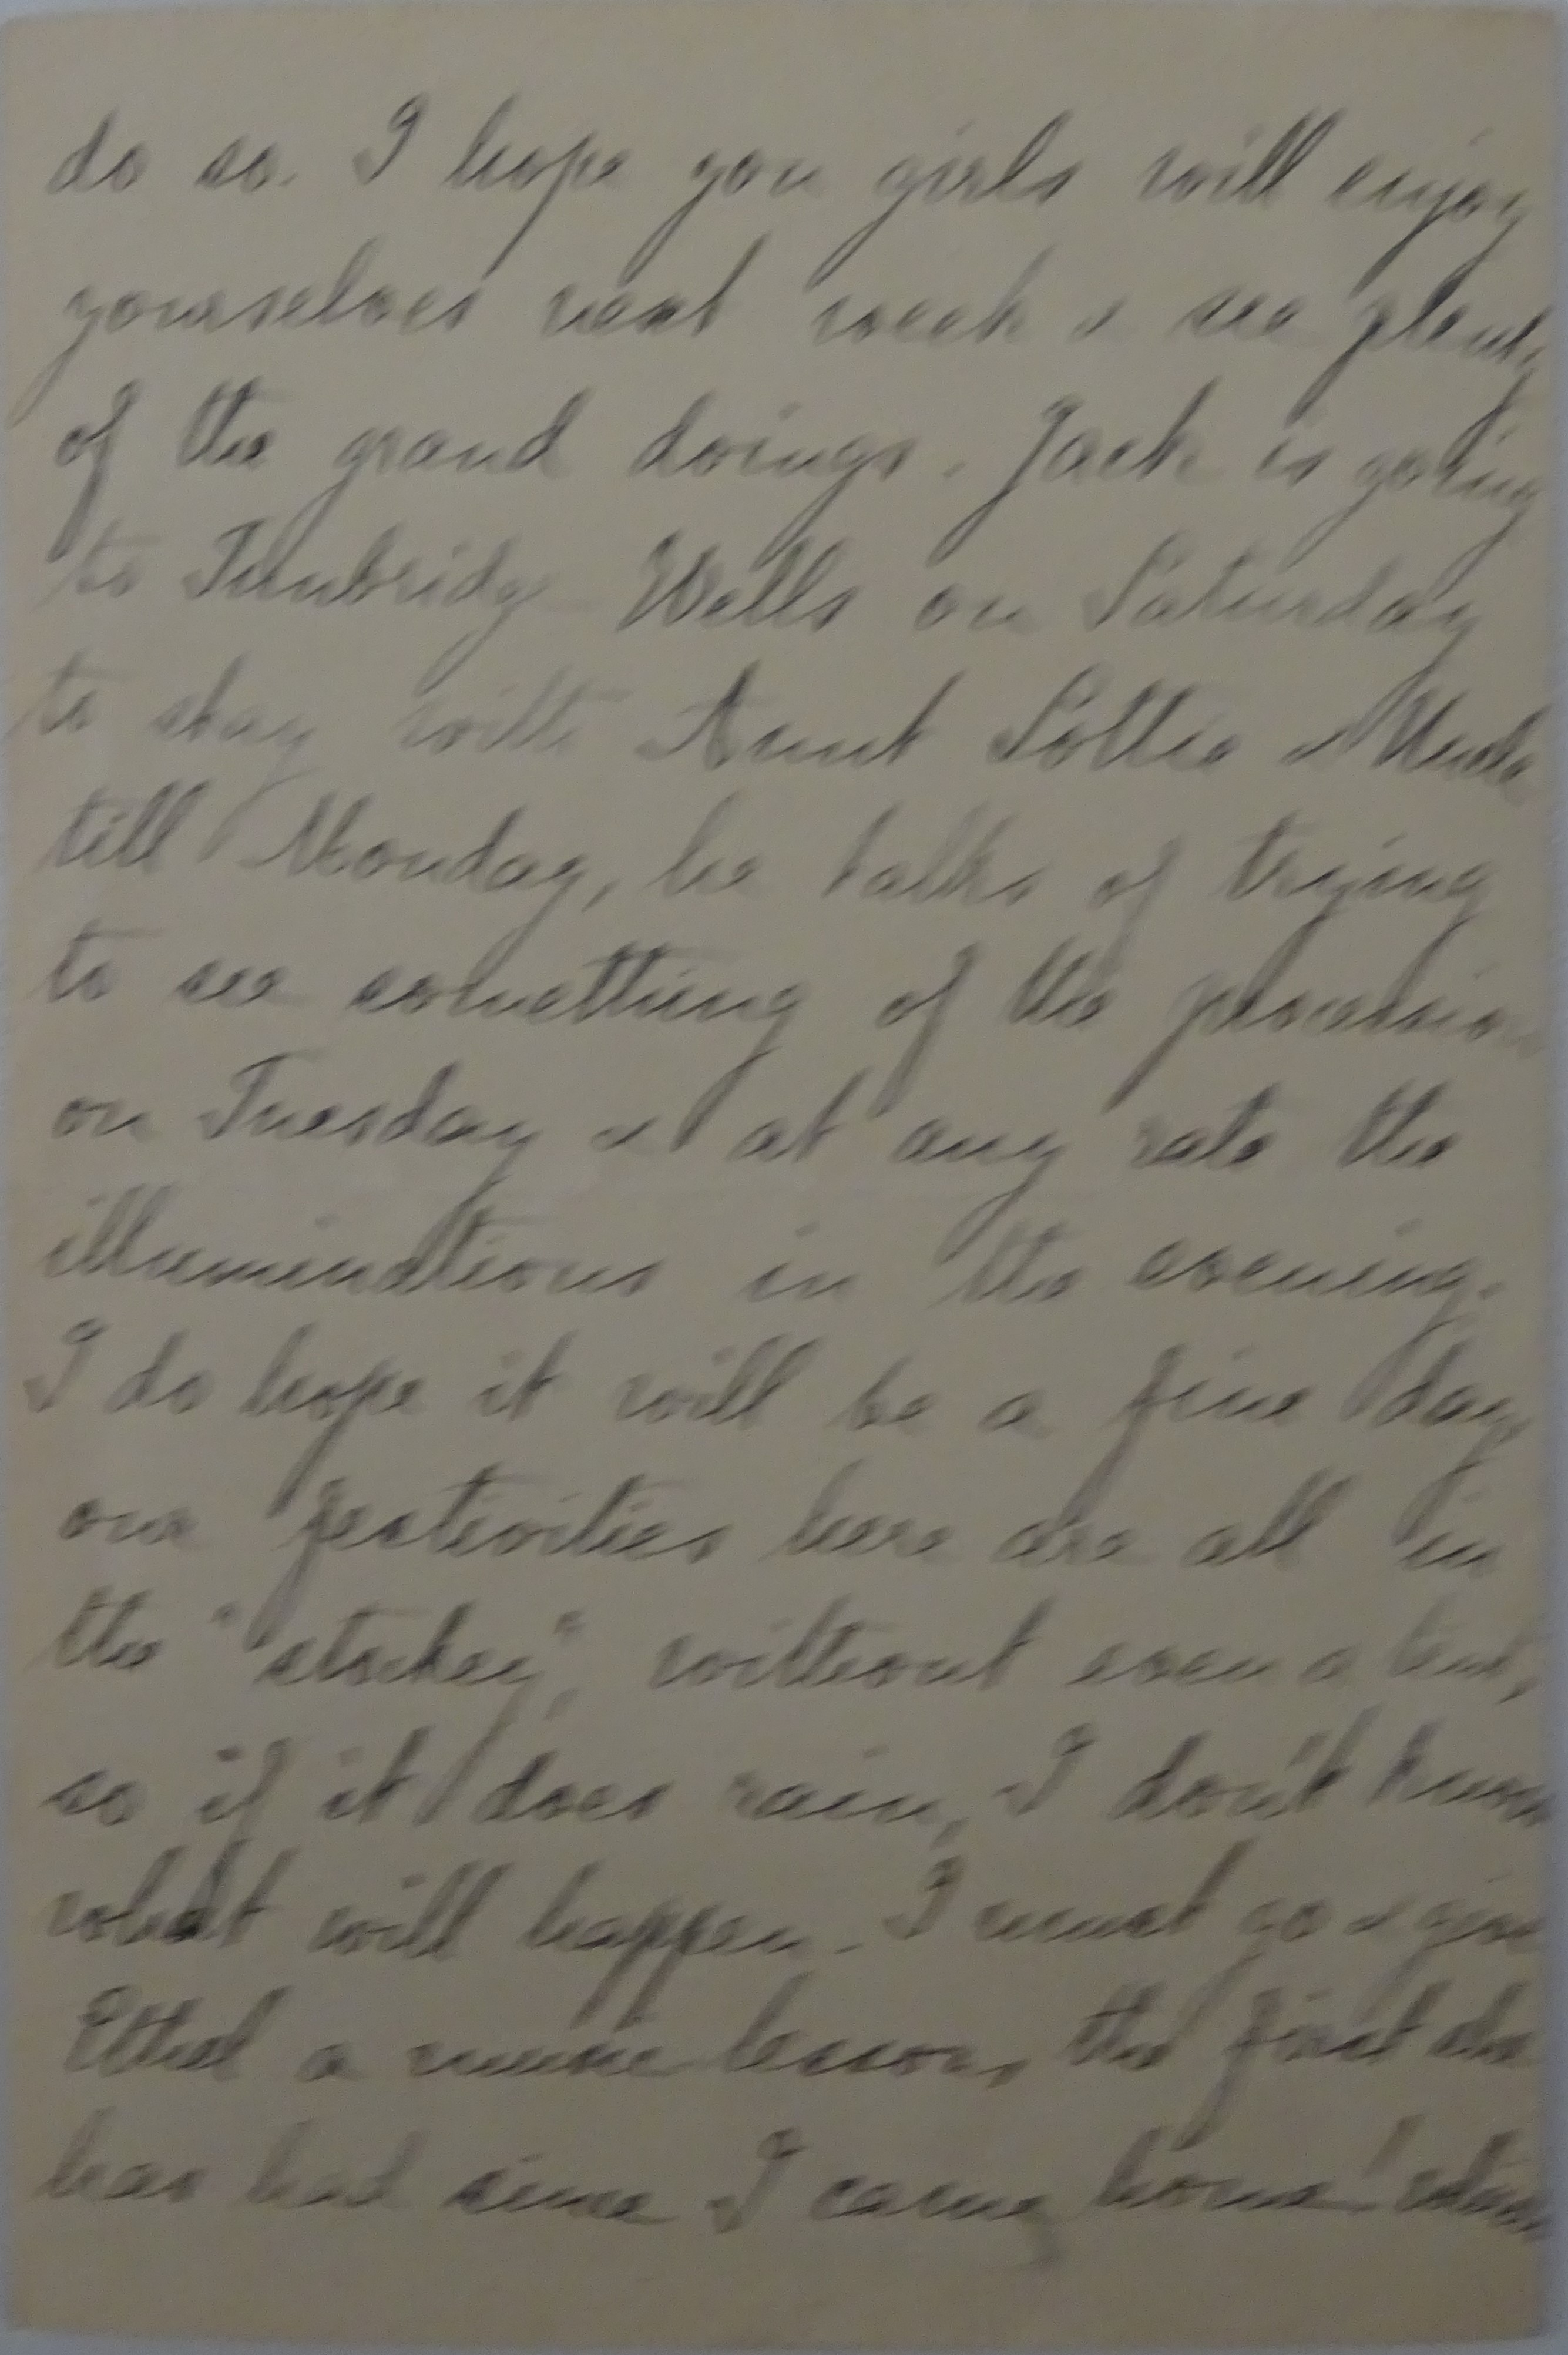 do so. I hope you girls will enjoy
yourselves next week & see plenty
of the grand doings. Jack is going
to Tunbridge Wells on Saturday
to stay with Aunt Lottie & Uncle
till Monday, he talks of trying
to see something of the procession
on Tuesday & at any rate the
illuminations in the evening.
I do hope it will be a fine day
our festivities here are all in
the " ", without even a tent,
so if it does rain, I don't know
what will happen. I must go & give
Ethel a music lesson, the first she
has had since I came home!